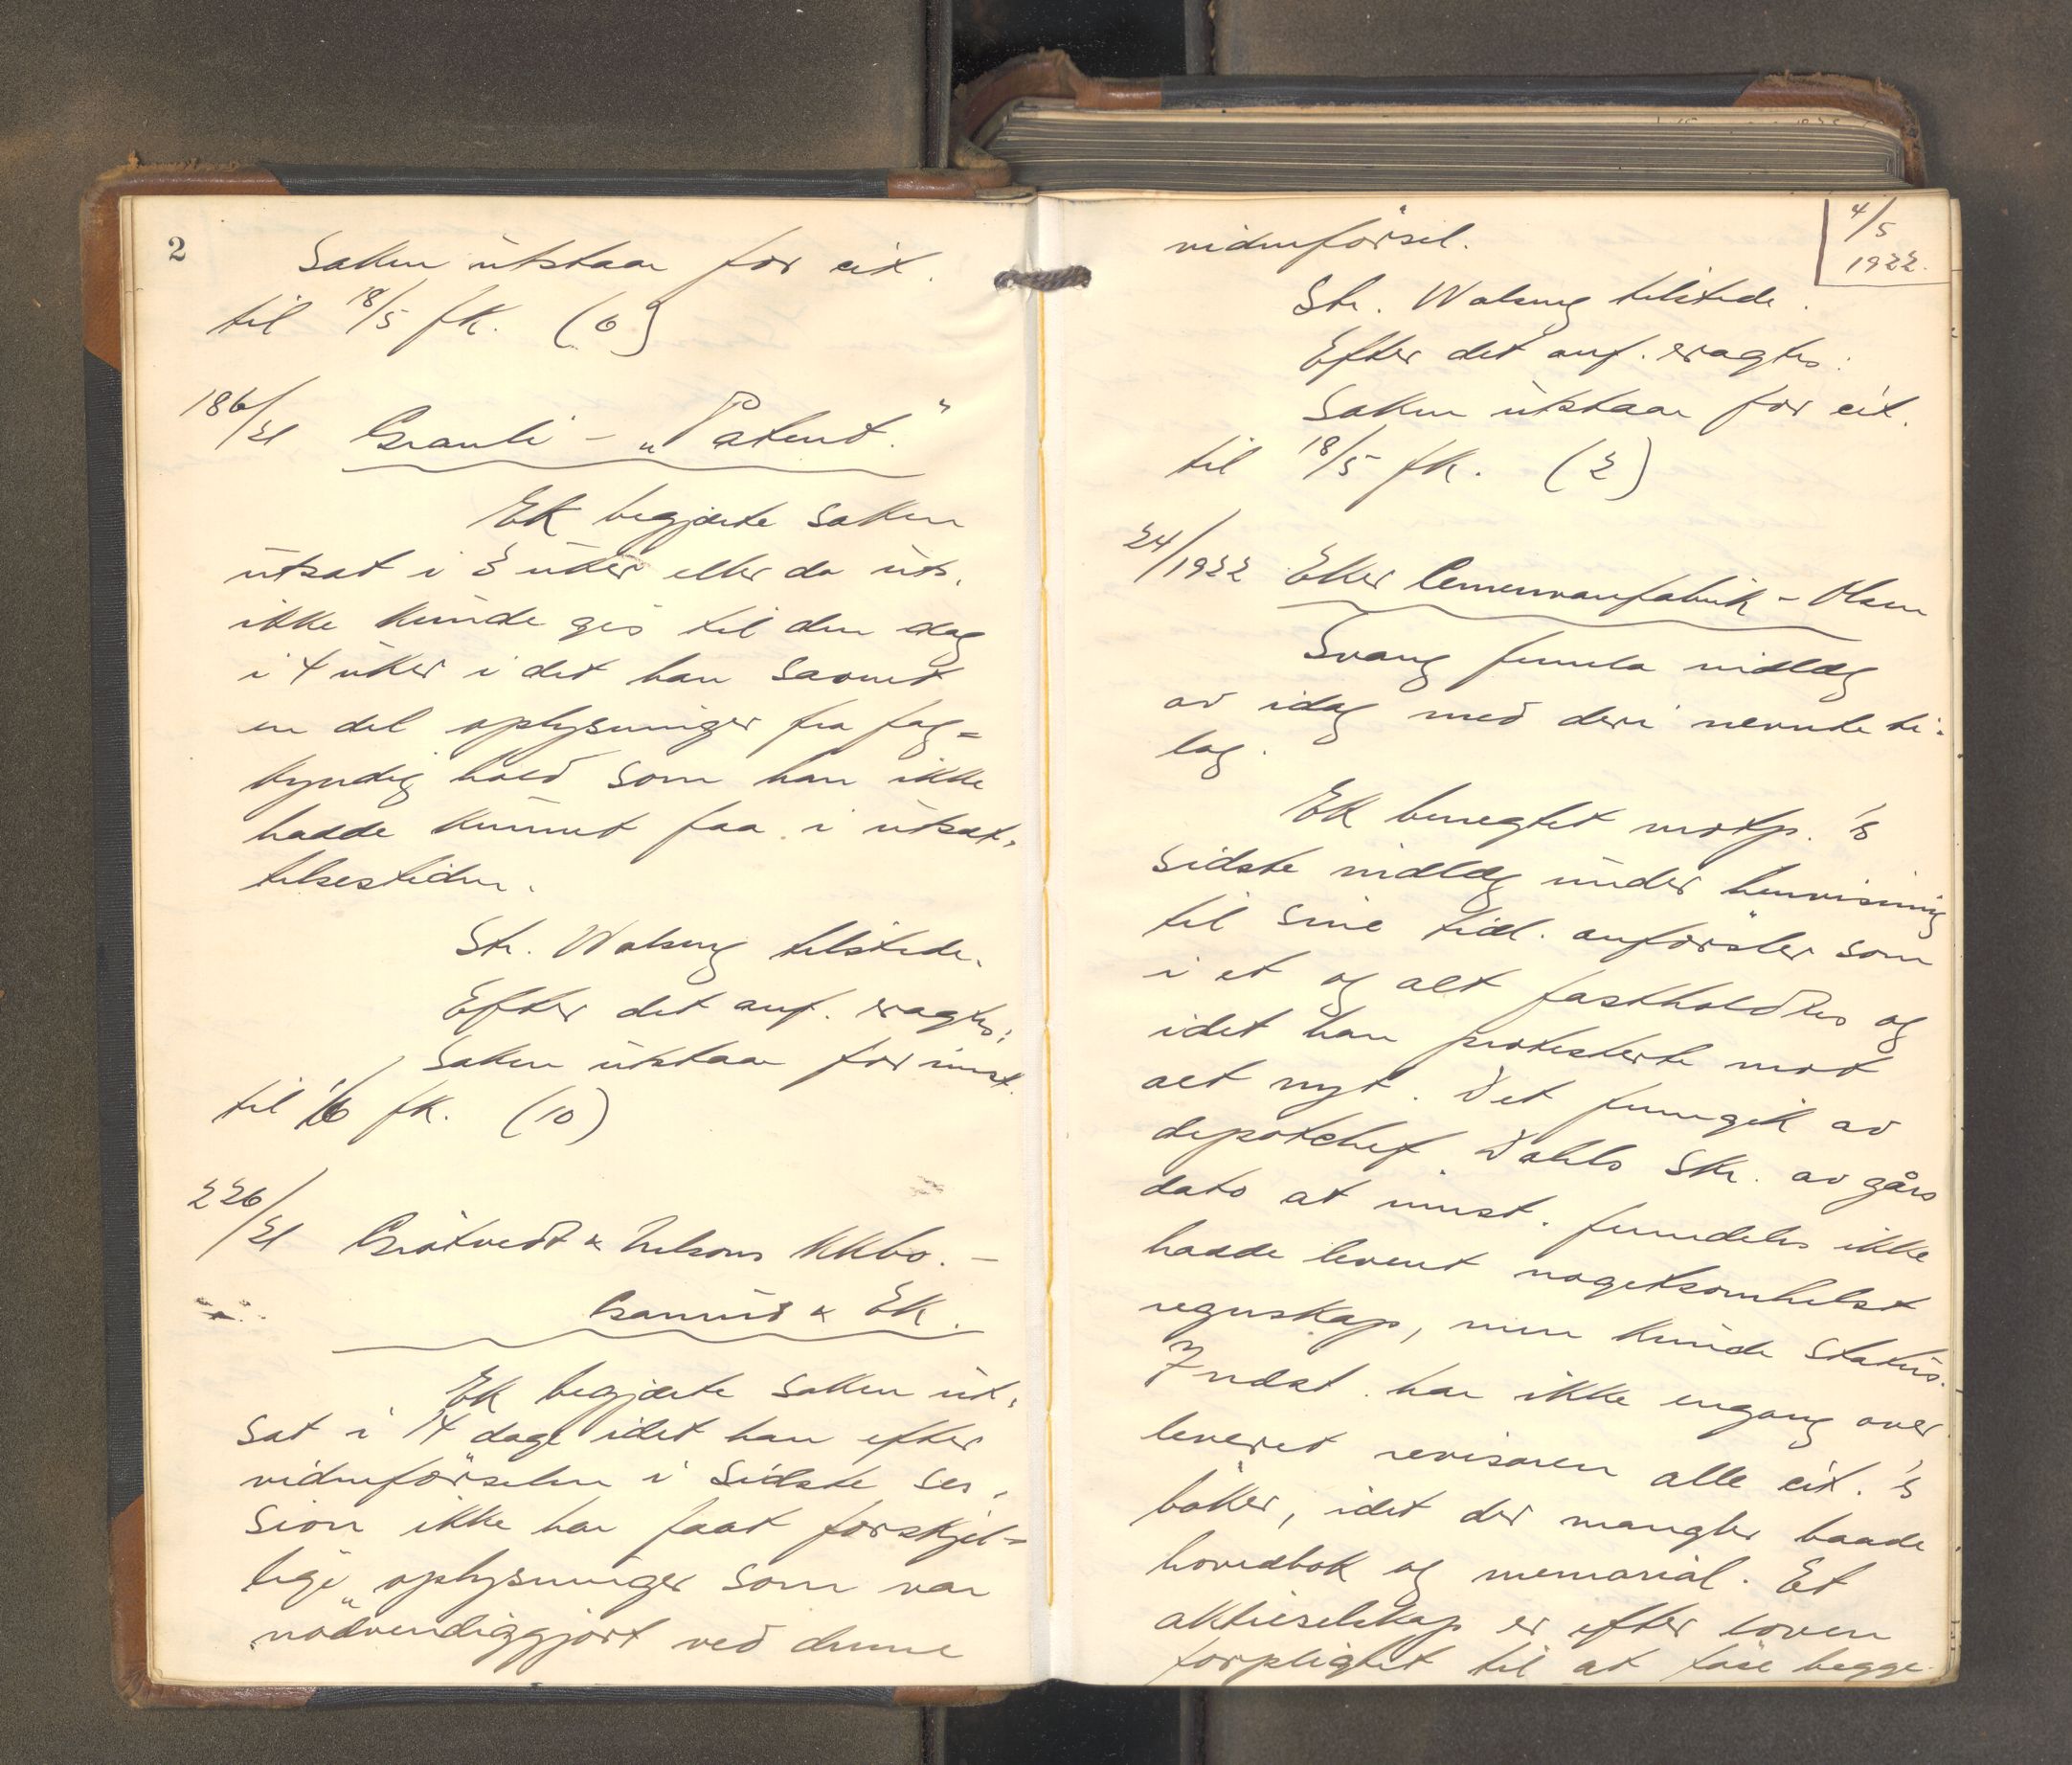 2
Saken utstaar for cit.
til 18/5 fk. (6)
186/21 Granli - „Patent."
Ek begjærte saken
utsat i 3 uker eller da uts.
ikke kunde gis til den dag
i 4 uker i det han savnet
en del oplysninger fra fag=
kyndig hold som han ikke
hadde kunnet faa i utsæt-
telsestiden.
Str. Walsng tilstede.
Efter det anf. eragtes:
Saken utstaar for inst.
til 1/6 fk. (10)
226/21 Grøtvedt & Nelsons KKbo. -
& Ek.
Ek begjærte saken ut-
sat i 14 dage idet han efter
vidneførselen i sidste ses-
sion ikke har faat forskjel=
lige oplysninger som var
nødvendiggjort ved denne
4/5
1922.
vidneførsel.
Str. Walsng tilstede.
Efter det anf. eragtes:
Saken utstaar for cit.
til 18/5 fk. (2)
24/1922 Eker Cementvarefabrik - Olsen
Svang fremla indlæg
av idag med deri nevnte bi-
lag.
Ek benegtet motp.'s
sidste indlæg under henvisning
til sine tidl. anførsler som
i et og alt fastholdtes og
idet han protesterte mot
alt nyt. Det fremgik av
depotchef Dahls skr. av gårs
dato at innst. fremdeles ikke
hadde levert nogetsomhelst
regnskap, men kunde status.
Indst. har ikke engang over
leveret revisoren alle cit.'s
bøker, idet der mangler baade
hovedbok og memorial. Et
aktieselskap er efter loven
forpligtet til at føre begge